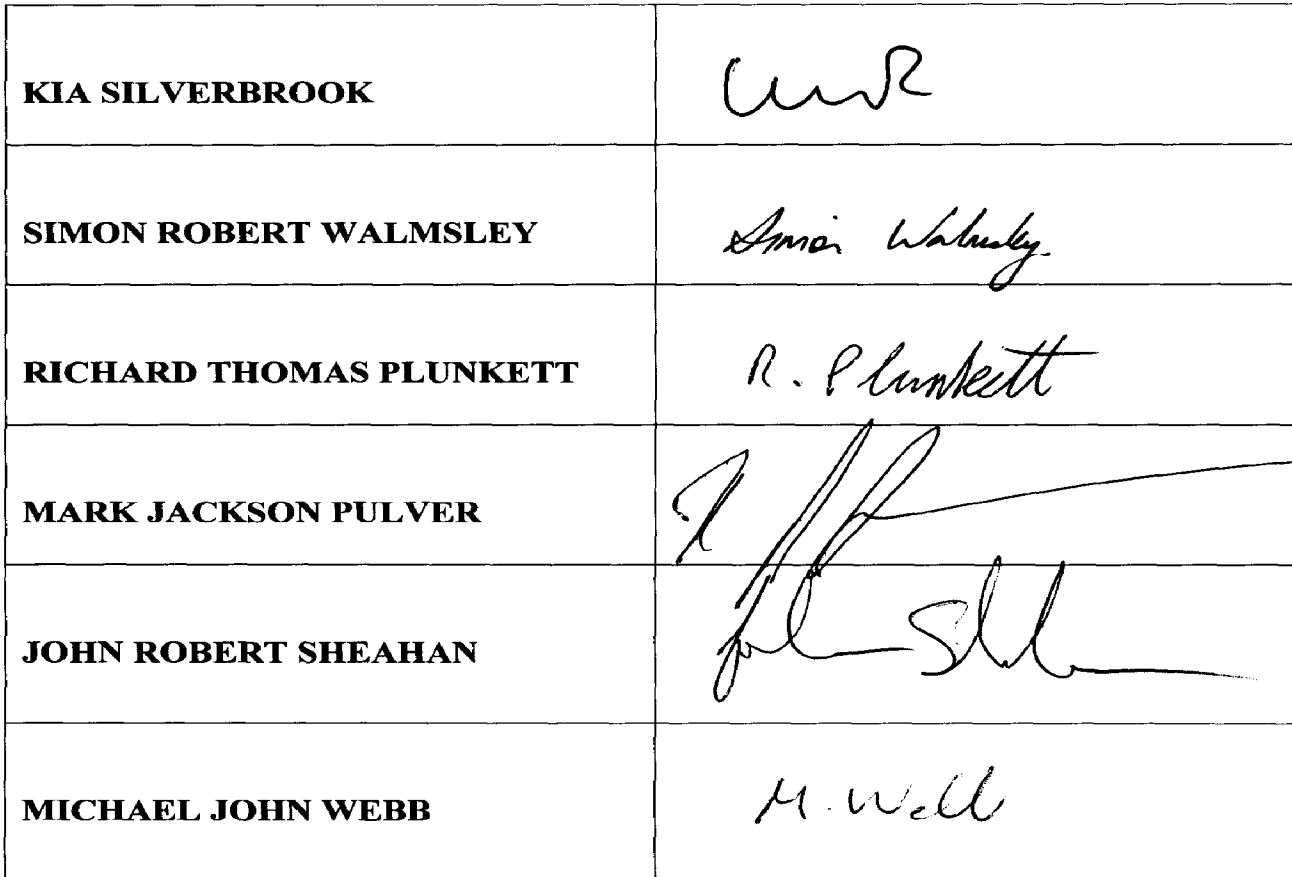 KIA SILVERBROOK
SIMON ROBERT WALMSLEY Simon Walmsley
RICHARD THOMAS PLUNKETT R. Plunkett
MARK JACKSON PULVER
JOHN ROBERT SHEAHAN
MICHAEL JOHN WEBB M. Webb